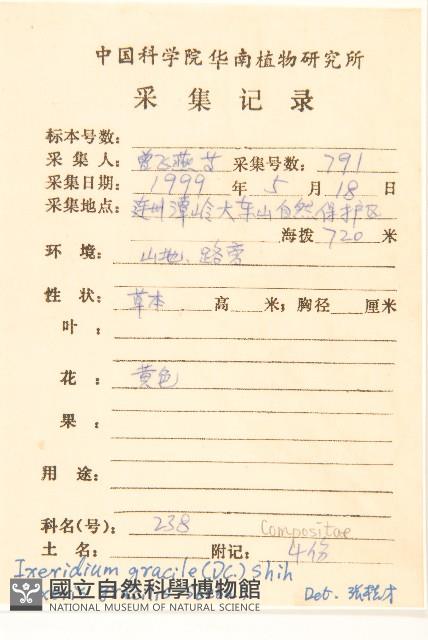 中国科学院华南植物研究所
采集记录
标本号数：
采集人：曾飞燕等 采集号数：791
采集日期：1999年5月18日
采集地点：连州潭岭大东山自然保护区
海拨720米
环境：山地、路旁
性状：草本 高 米；胸径 厘米
叶：
花：黄色
果：
用途：
科名(号)：238 Compositae
土名： 附记：4份
Ixeridium gracile (DC.) Shih
Det. 张
國立自然科學博物館
NATIONAL MUSEUM OF NATURAL SCIENCE